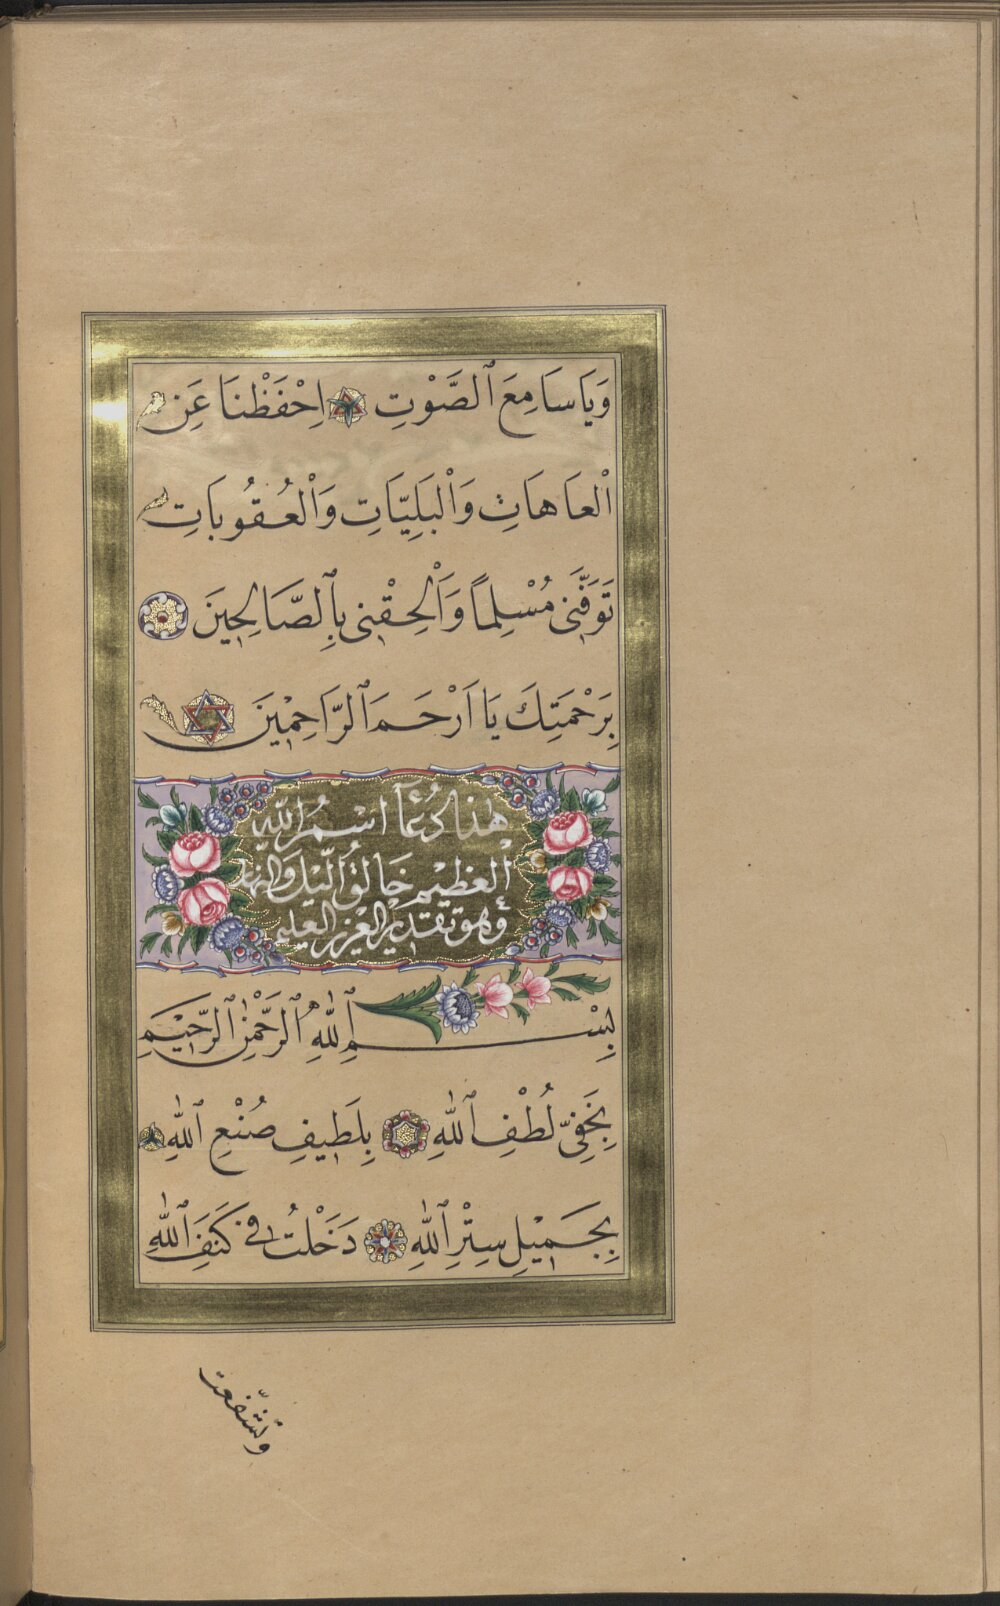 وَيَاسَامِعَ ٱلصَّوْتِ اِحْفَظْنَا عَنِ
اْلعَاهَاتِ وَاْلبَلِيَّاتِ وَاْلعُقُوبَاتِ
تَوَفَّنِى مُسْلِماً وَاَلْحِقْنِى بِٱلصَّالِحِينَ
بِرَحْمَتِكَ يَا اَرْحَمَ ٱلرَّاحِمِينَ
هٰذَا دُعَٓا اسْمُ اللّٰهِ
اْلعَظِيْمِ خَالِقُ الَّيْلِ وَالنهار
وهو تقدير العزيز العليم
بِسْمِ ٱللّٰهِ ٱلرَّحْمٰنِ ٱلرَّحِيْمِ
بِخَفِىِّ لُطْفِ ٱللّٰهِ بِلَطِيفِ صُنْعِ ٱللّٰهِ
بِجَمِيْلِ سِتْرِ ٱللّٰهِ دَخَلْتُ فِى كَنَفِ ٱللّٰهِ
وتشفّعت